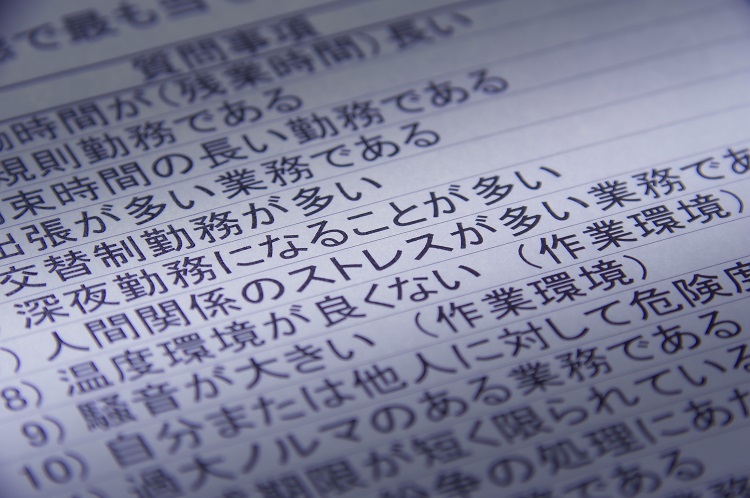 で最も当て
質問事項
時間が（残業時間）長い
規則勤務である
束時間の長い勤務である
出張が多い業務である
交替制勤務が多い
深夜勤務になることが多い
）人間関係のストレスが多い業務であ
8）温度環境が良くない（作業環境）
9）騒音が大きい（作業環境）
10）自分または他人に対して危険度
過大ノルマのある業務である
期限が短く限られている
紛争の処理にあた
である